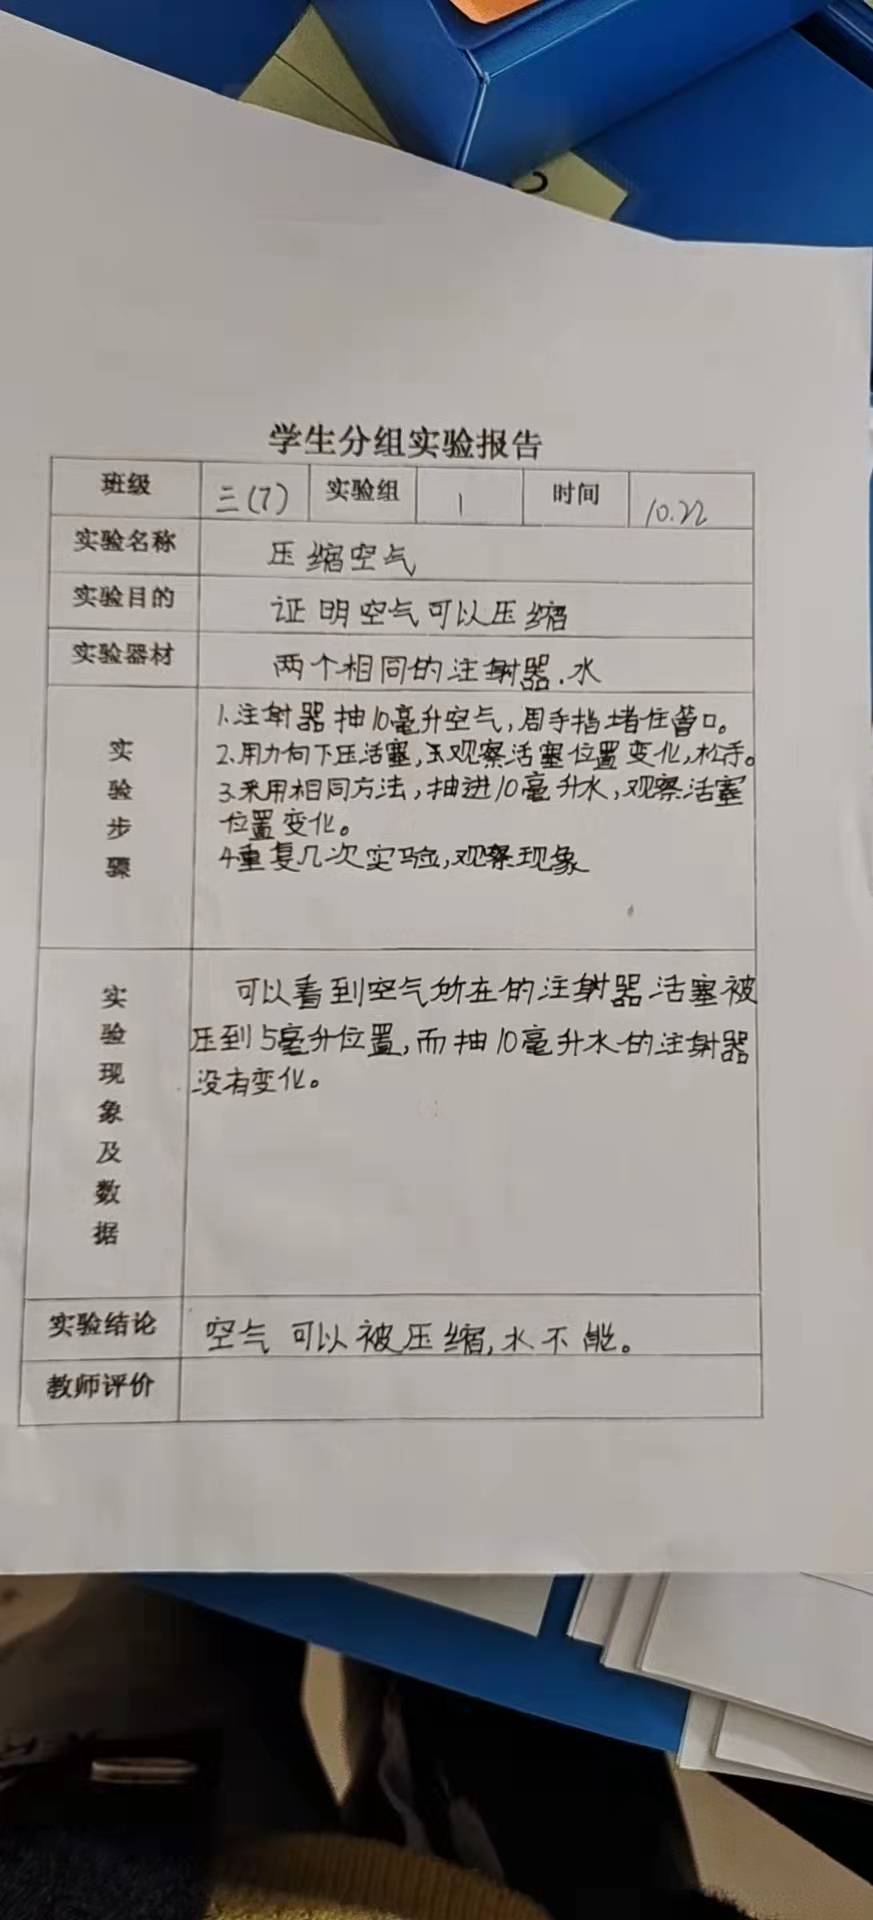 学生分组实验报告
班级 三(7) 实验组 1 时间 10.22
实验名称 压缩空气
实验目的 证明空气可以压缩
实验器材 两个相同的注射器.水
实验步骤
1.注射器抽10毫升空气,周手挡堵住管口。
2.用力向下压活塞,观察活塞位置变化,松手。
3.采用相同方法,抽进10毫升水,观察活塞
位置变化。
4重复几次实验,观察现象
实验现象及数据
可以看到空气所在的注射器活塞被
压到5毫升位置,而抽10毫升水的注射器
没有变化。
实验结论 空气可以被压缩,水不能。
教师评价